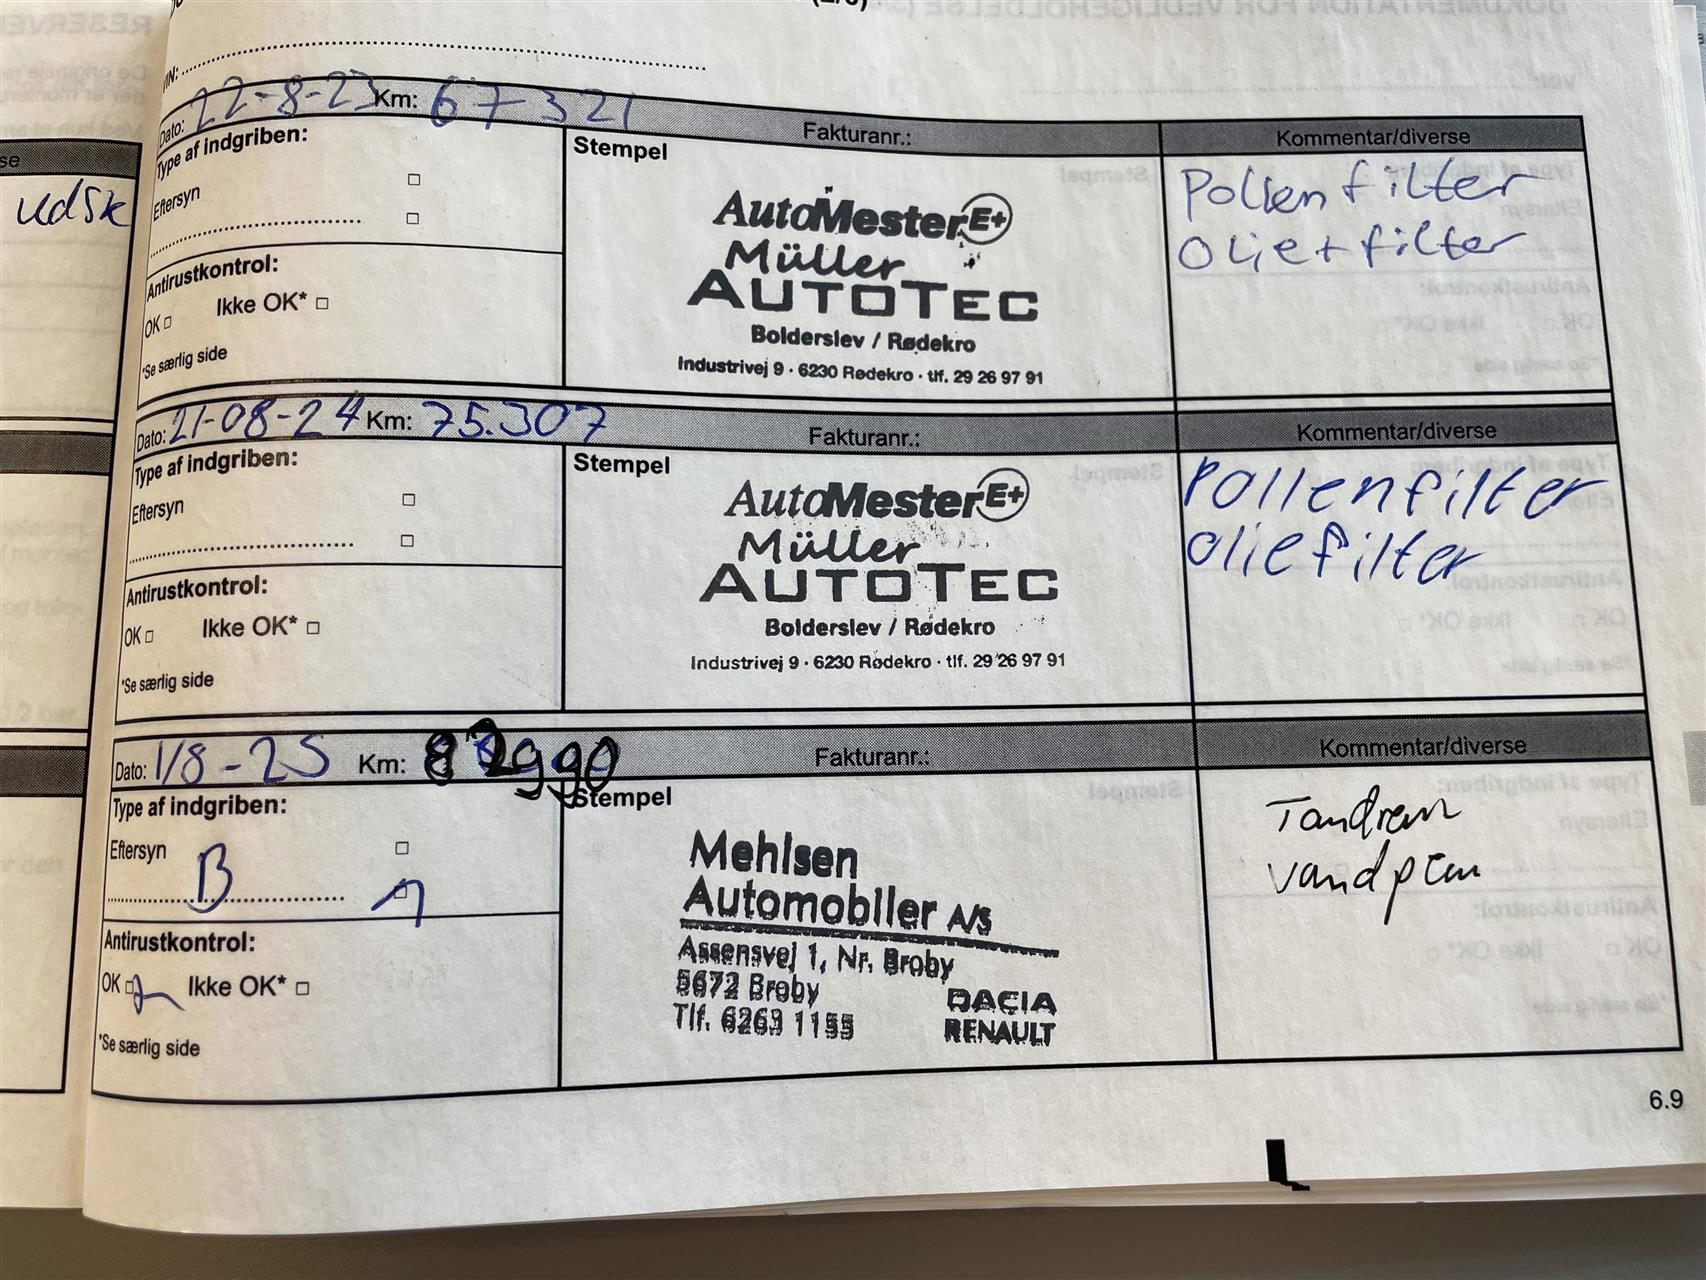 VIN:
Dato: 22-8-23 Km: 67321
Fakturanr.:
Kommentar/diverse
Type af indgriben:
Eftersyn
Antirustkontrol:
OK Ikke OK*
*Se særlig side
Stempel
AutoMester E+
Müller
AUTOTEC
Bolderslev / Rødekro
Industrivej 9 · 6230 Rødekro · tlf. 29 26 97 91
Pollenfilter
Olie+filter
Dato: 21-08-24 Km: 75.307
Fakturanr.:
Kommentar/diverse
Type af indgriben:
Eftersyn
Antirustkontrol:
OK Ikke OK*
*Se særlig side
Stempel
AutoMester E+
Müller
AUTOTEC
Bolderslev / Rødekro
Industrivej 9 · 6230 Rødekro · tlf. 29 26 97 91
Pollenfilter
oliefilter
Dato: 1/8-25 Km: 82990
Fakturanr.:
Kommentar/diverse
Type af indgriben:
Eftersyn
B
Antirustkontrol:
OK Ikke OK*
*Se særlig side
Stempel
Mehlsen
Automobiler A/S
Assensvej 1, Nr. Broby
5672 Broby
Tlf. 6263 1155
DACIA
RENAULT
Tandrem
vandpum
6.9
udsk